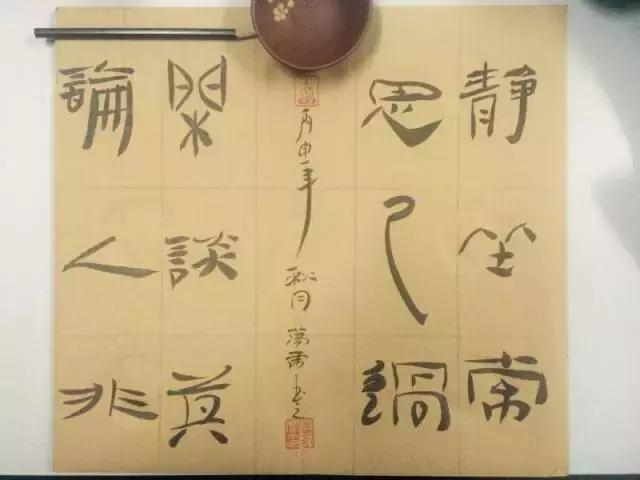 靜坐常
思己過
丙申年秋月
閑談莫
論人非